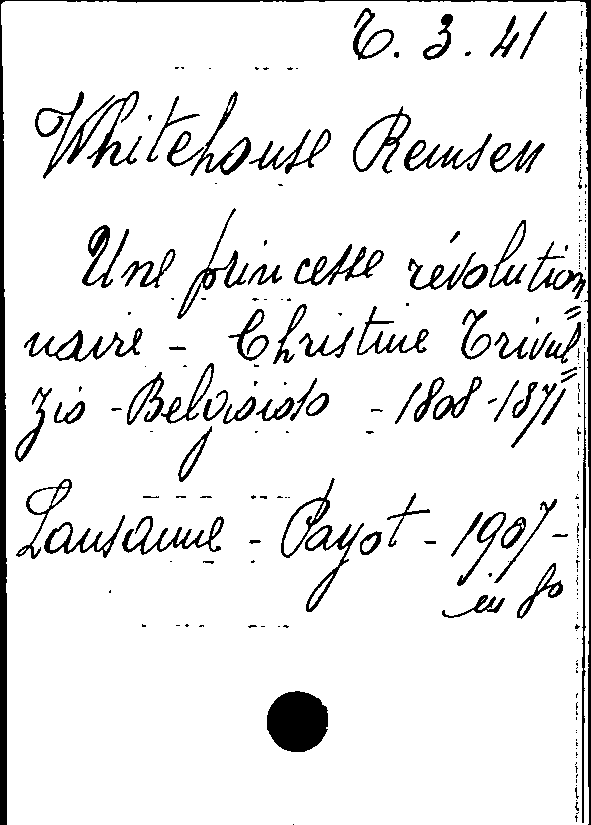 T. 3. 41
Whitehouse Remsen
Une princesse révolution=
naire - Christine Trivul=
zio - Belgioioso - 1808 - 1871
Lausanne - Payot - 1907 -
in 8o